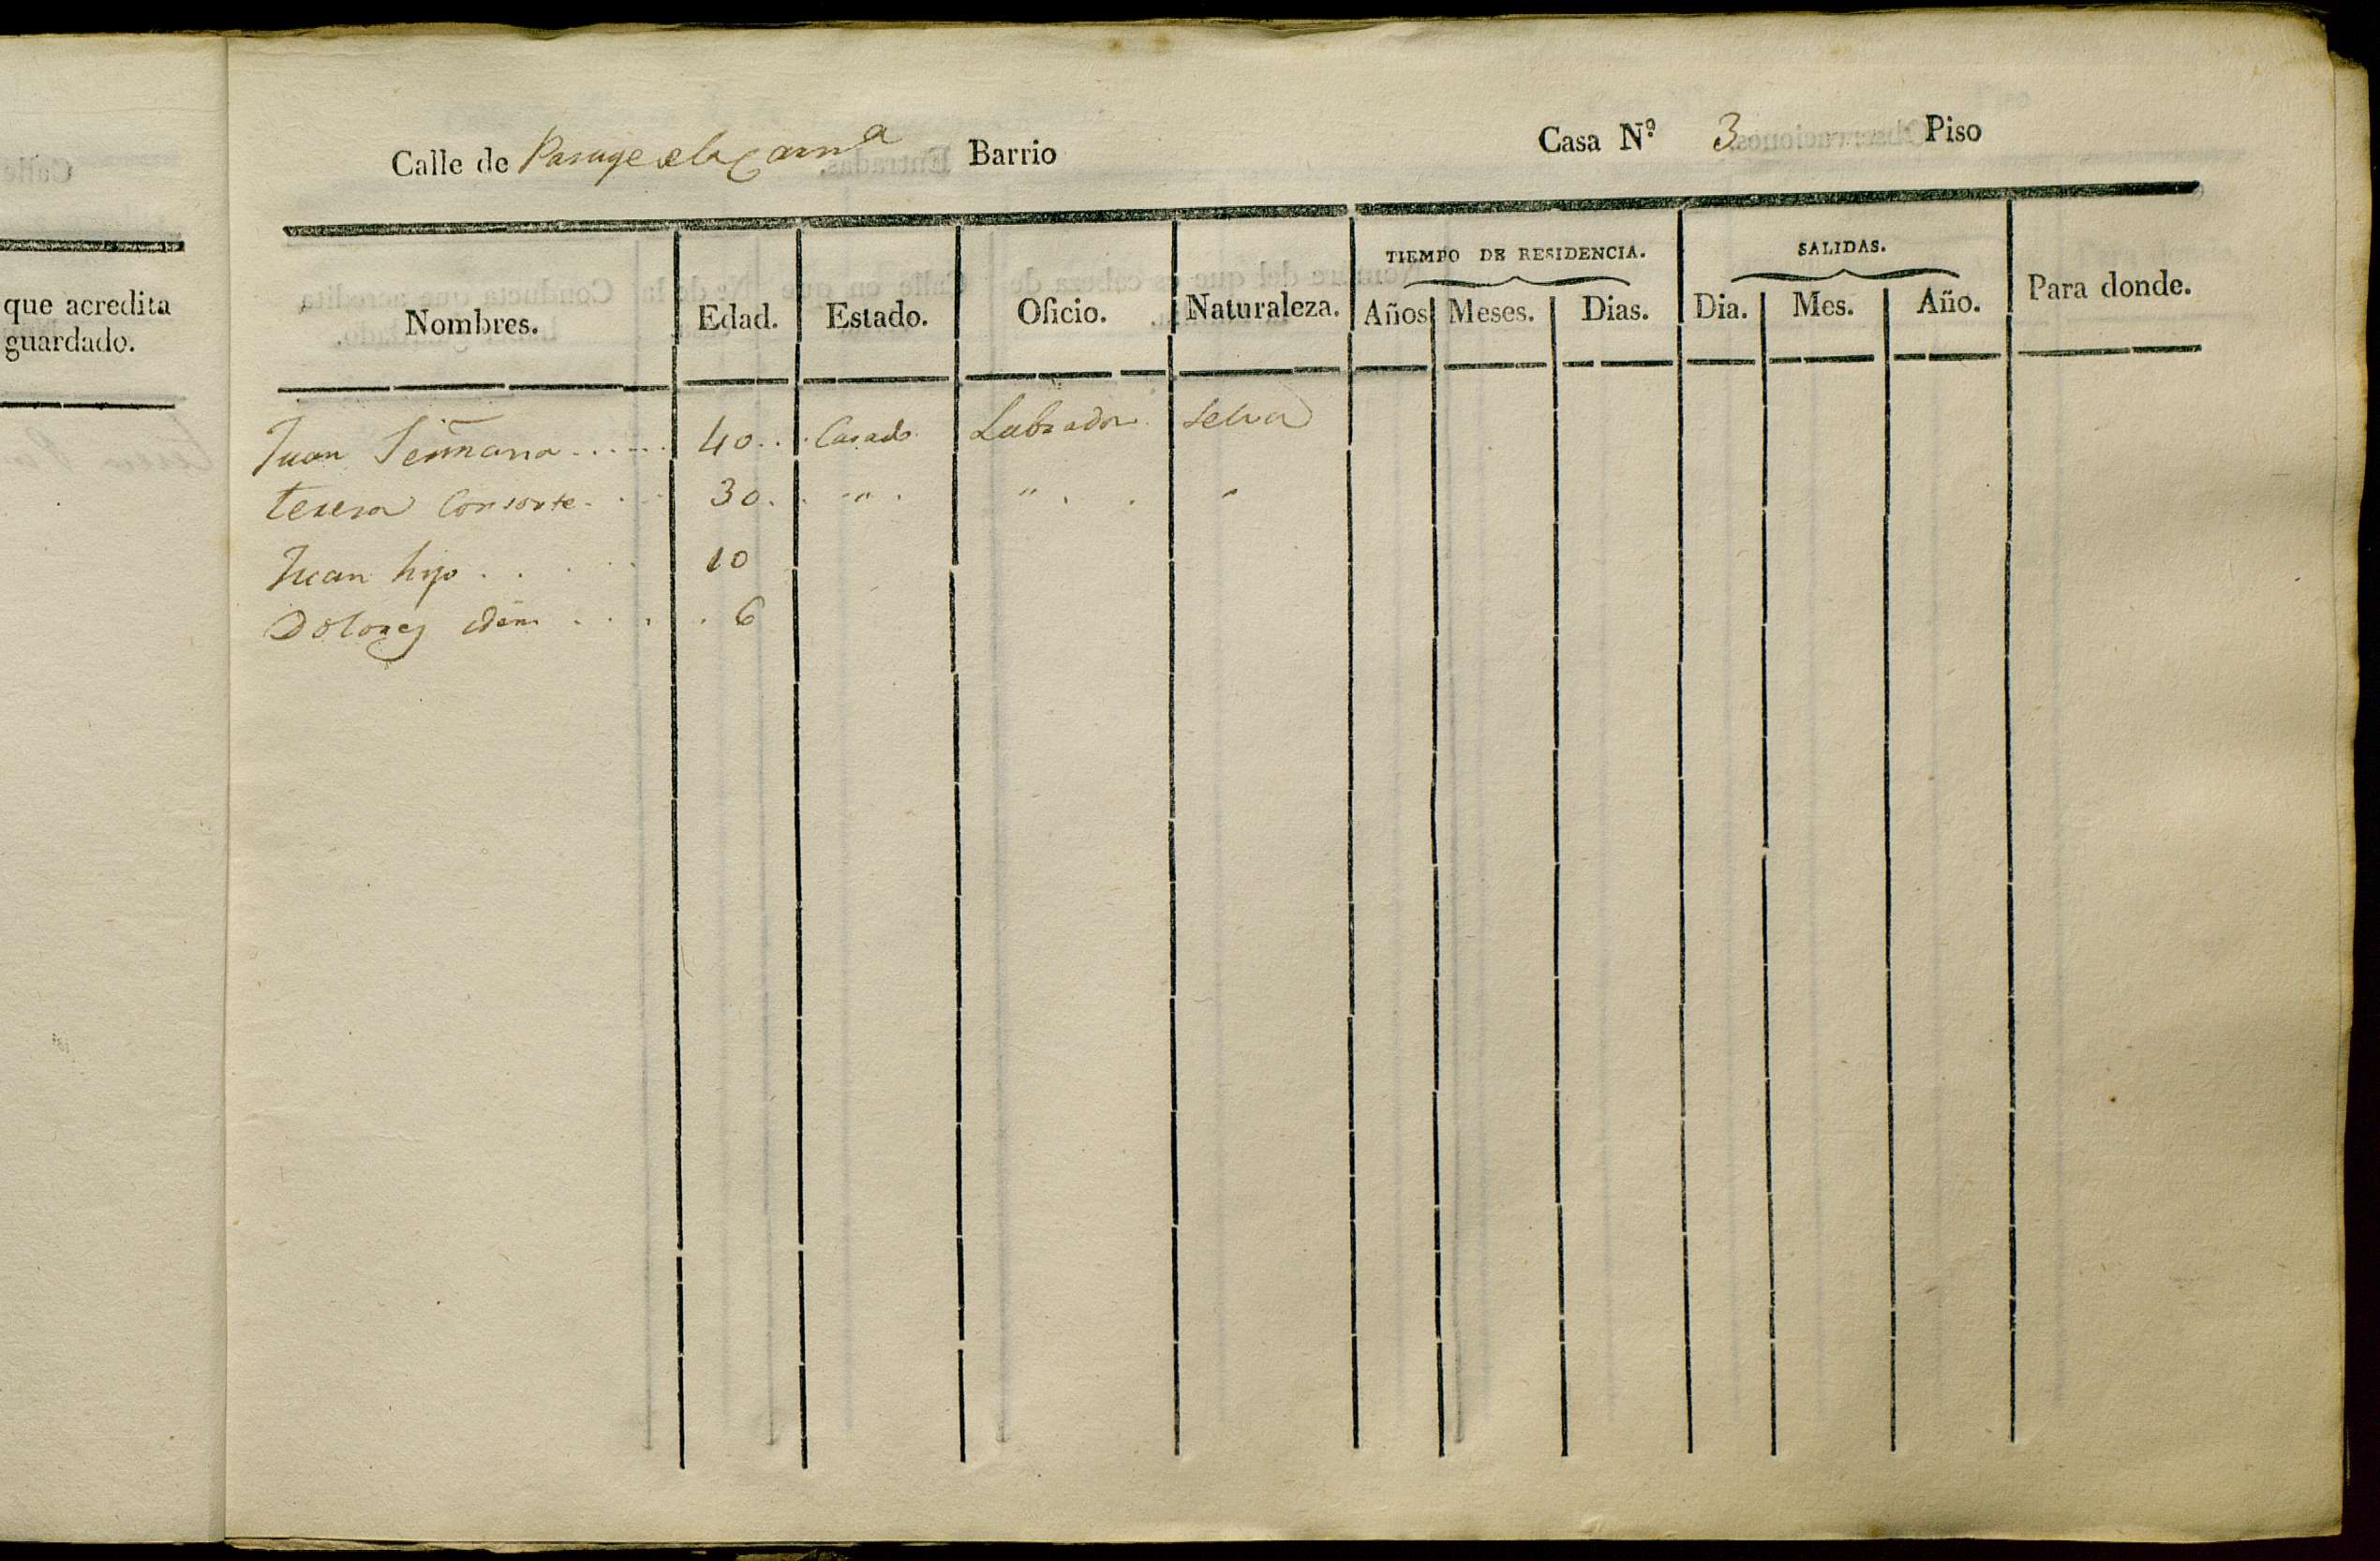 que acredita
guardado.
Calle de Pasage de la Barrio Casa N.º 3 Piso
TIEMPO DE RESIDENCIA. SALIDAS.
Nombres. Edad. Estado. Oficio. Naturaleza. Años Meses. Dias. Dia. Mes. Año. Para donde.
Juan ..... 40.. . Casado. Labrador. Selva
teresa Consorte. . . 30. . " . " . . "
Juan hijo . . . . . 10
Dolores idem . . . . 6